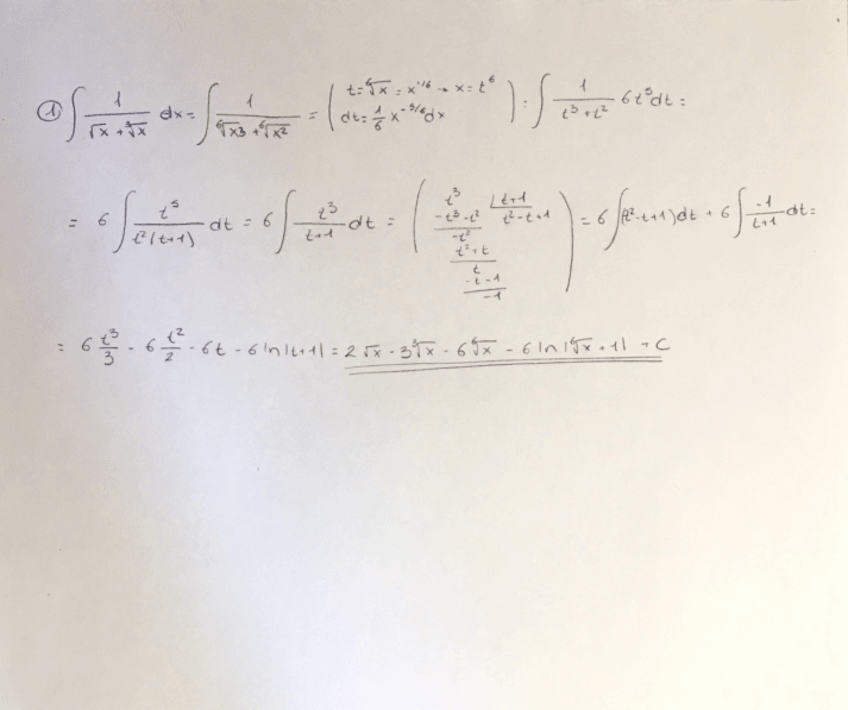 ① ∫ 1/(√x + ∛x) dx = ∫ 1/(⁶√x3 + ⁶√x²) = ( t = ⁶√x = x^1/6 → x = t⁶ dt = 1/6 x^-5/6 dx ) = ∫ 1/(t³ + t²) 6t⁵dt =
= 6 ∫ t⁵/(t²(t+1)) dt = 6 ∫ t³/(t+1) dt = ( t³ | t+1 -t³-t² t²-t+1 -t² t²+t t -t-1 -1 ) = 6 ∫(t²-t+1)dt + 6 ∫ -1/(t+1) dt =
= 6 t³/3 - 6 t²/2 - 6t - 6 ln|t+1| = 2√x - 3∛x - 6⁶√x - 6 ln|⁶√x + 1| + C